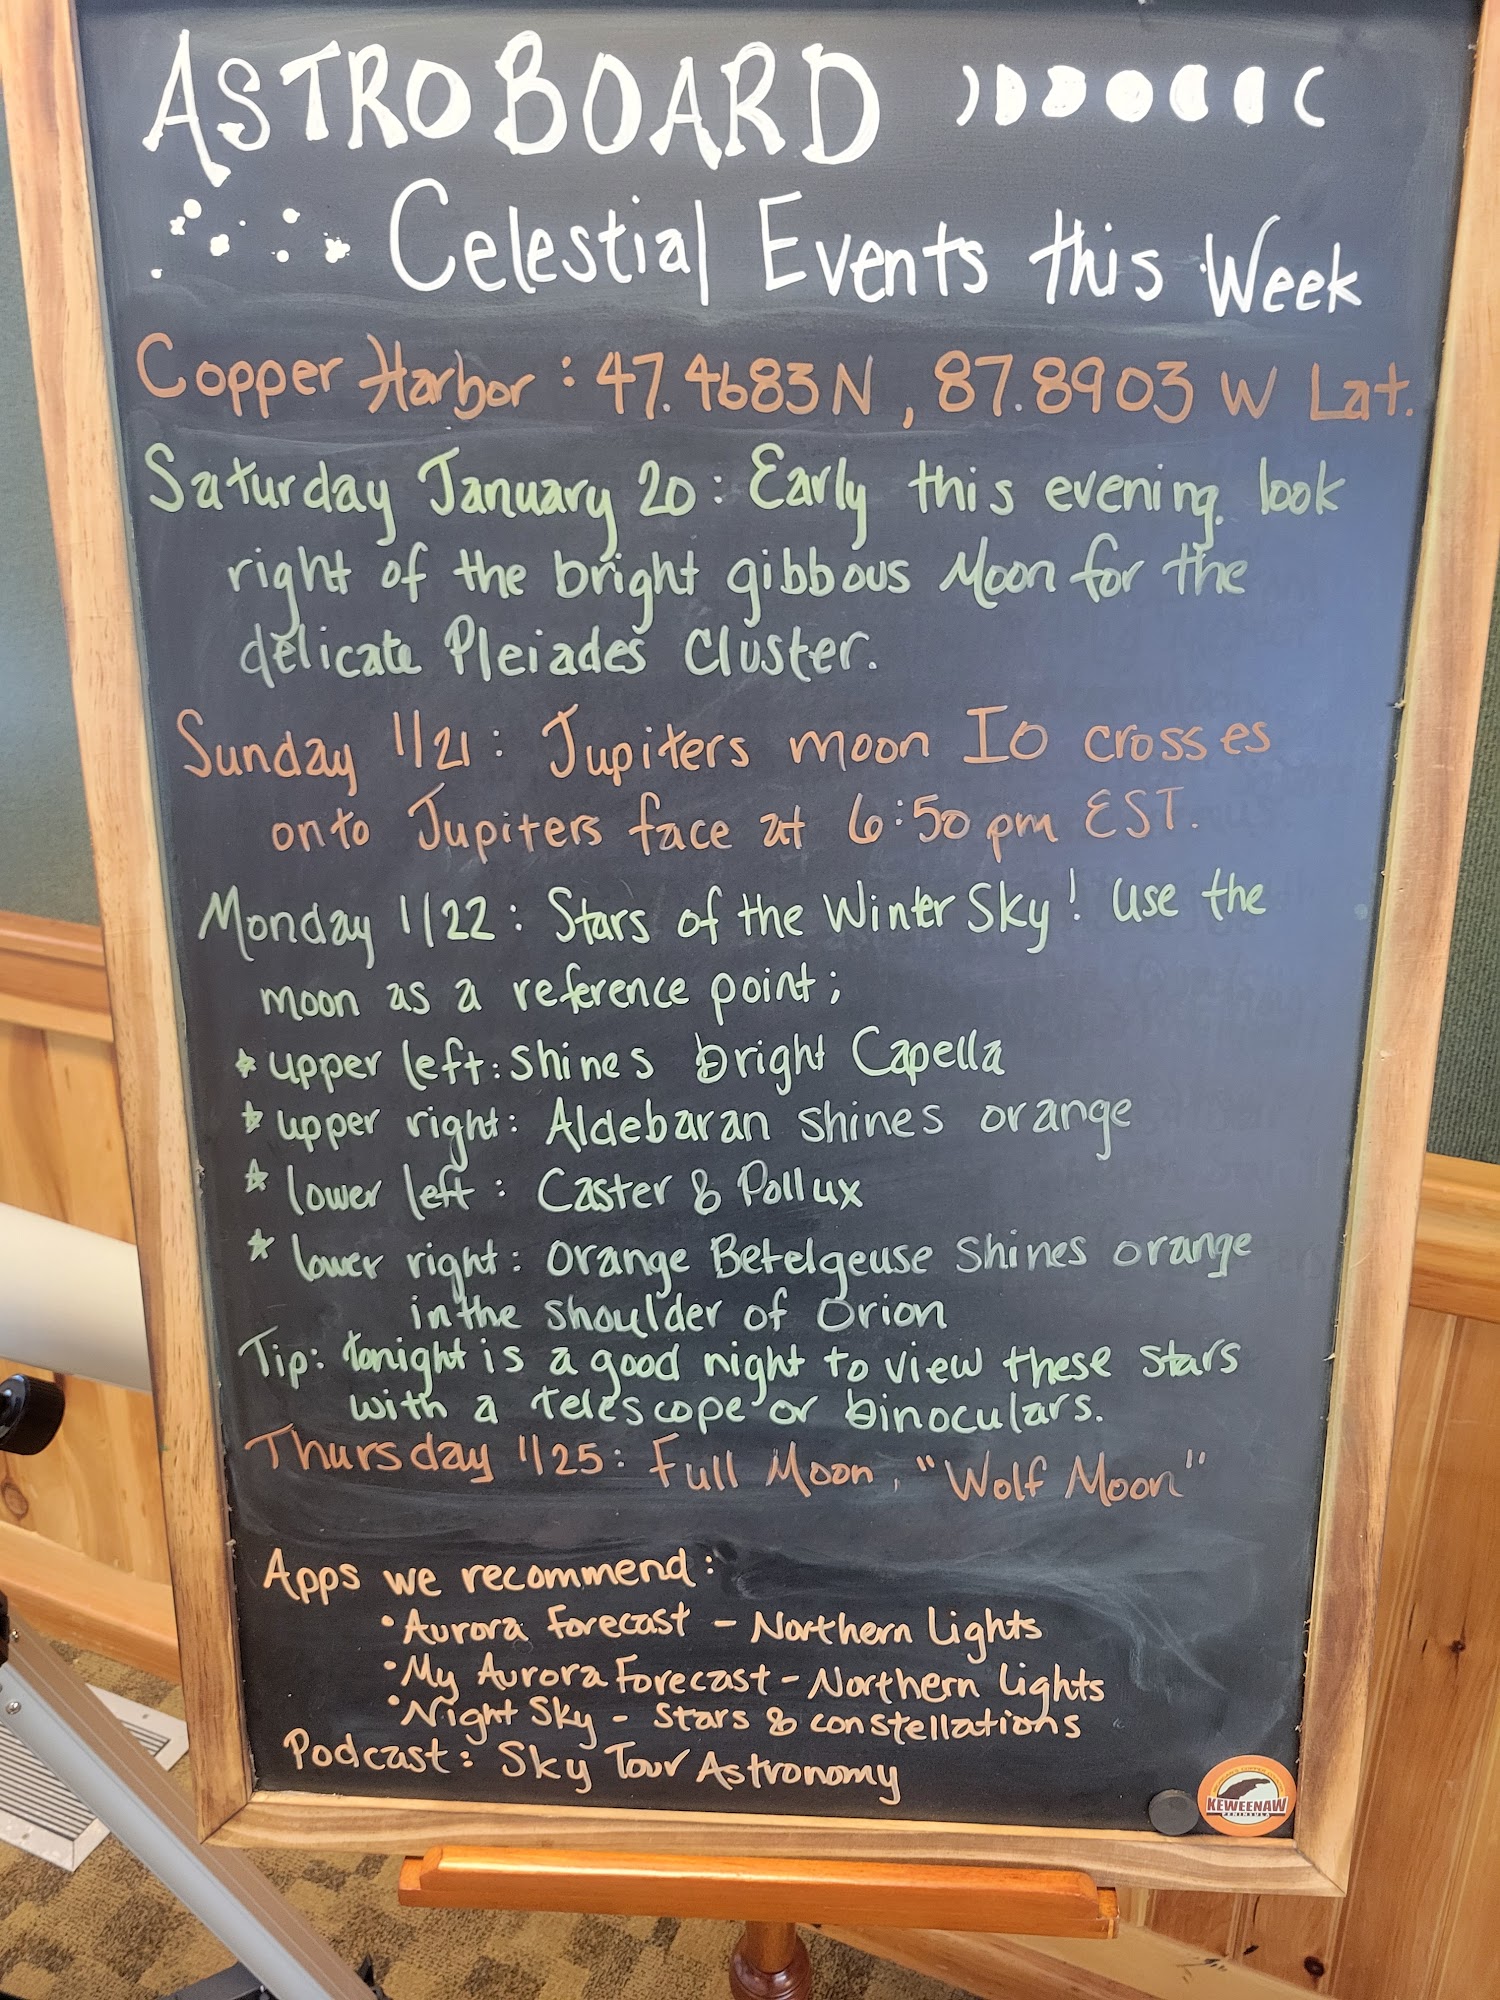 ASTROBOARD
Celestial Events this Week
Copper Harbor : 47.4683 N , 87.8903 W Lat.
Saturday January 20 : Early this evening, look
right of the bright gibbous Moon for the
delicate Pleiades Cluster.
Sunday 1/21 : Jupiters moon Io crosses
onto Jupiters face at 6:50 pm EST.
Monday 1/22 : Stars of the Winter Sky! Use the
moon as a reference point;
* upper left: shines bright Capella
* upper right: Aldebaran shines orange
* lower left : Caster & Pollux
* lower right: Orange Betelgeuse shines orange
in the shoulder of Orion
Tip: tonight is a good night to view these stars
with a telescope or binoculars.
Thursday 1/25 : Full Moon, "Wolf Moon"
Apps we recommend:
• Aurora Forecast - Northern Lights
• My Aurora Forecast - Northern Lights
• Night Sky - Stars & constellations
Podcast: Sky Tour Astronomy
KEWEENAW
PENINSULA